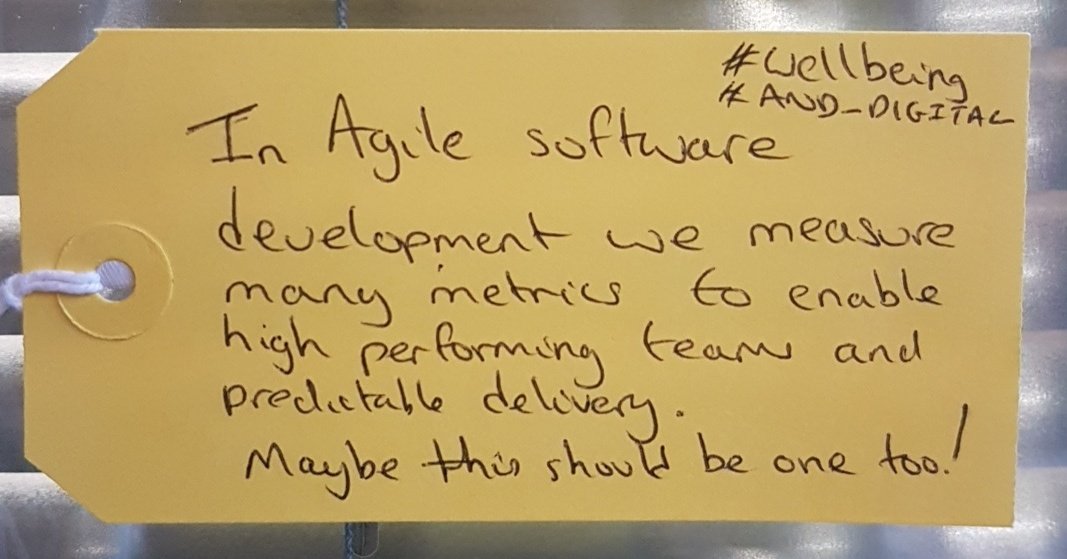 #wellbeing
# AND_DIGITAL
In Agile software
development we measure
many metrics to enable
high performing teams and
predictable delivery.
Maybe this should be one too!